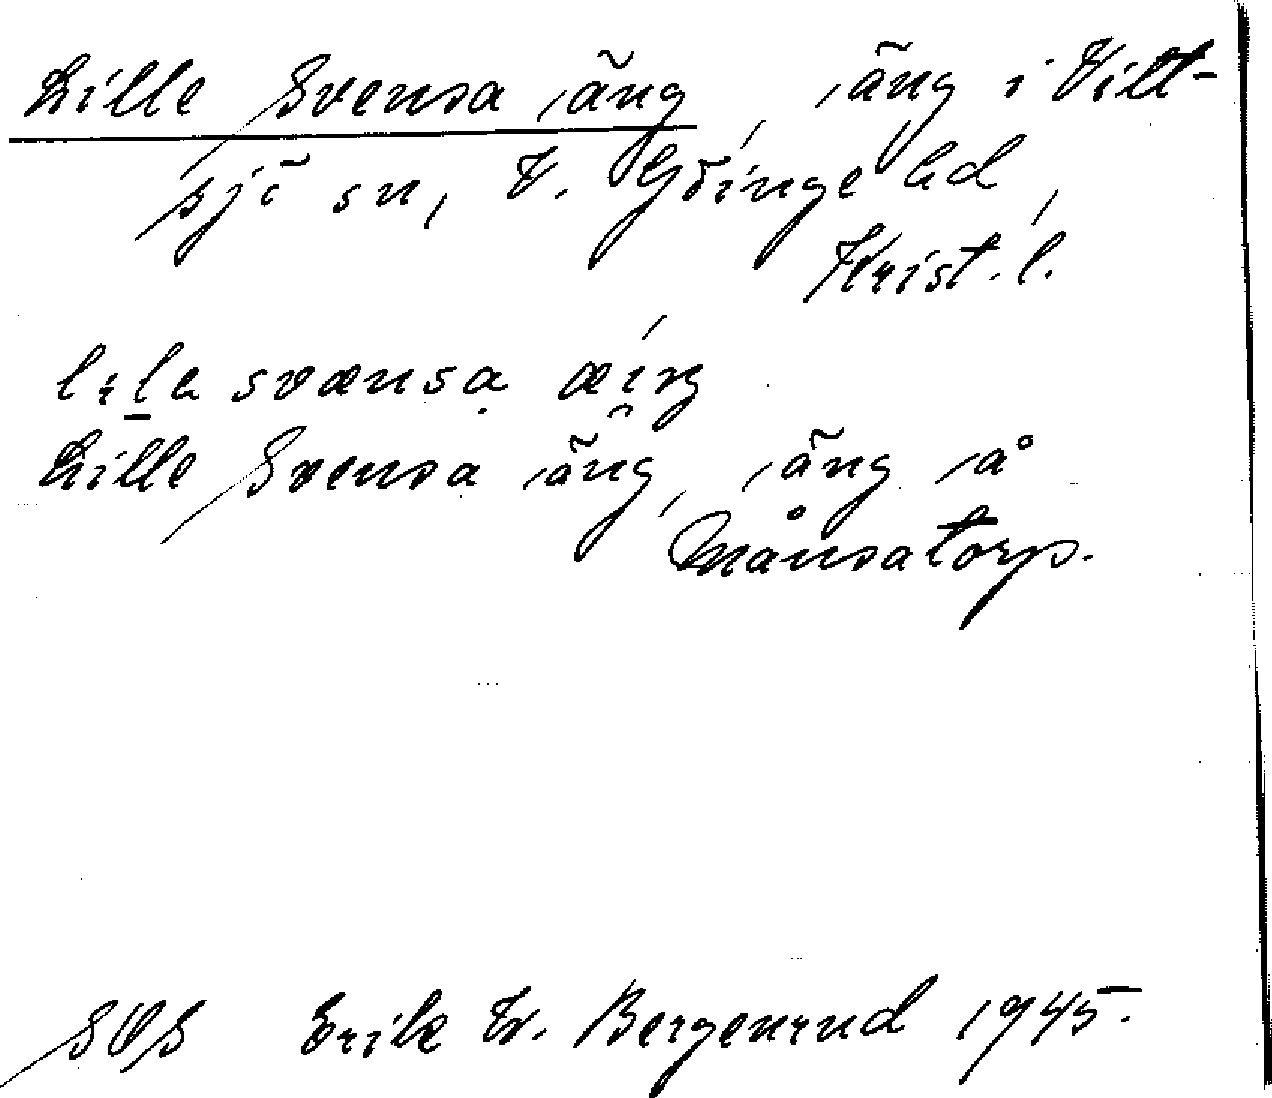 Lille Svensa äng, äng i Vitt-
sjö sn, V. Göinge hd,
Krist. l.
svænsa
Lille Svensa äng, äng å
Månsatorp.
SOS Erik W. Bergenrud 1945.